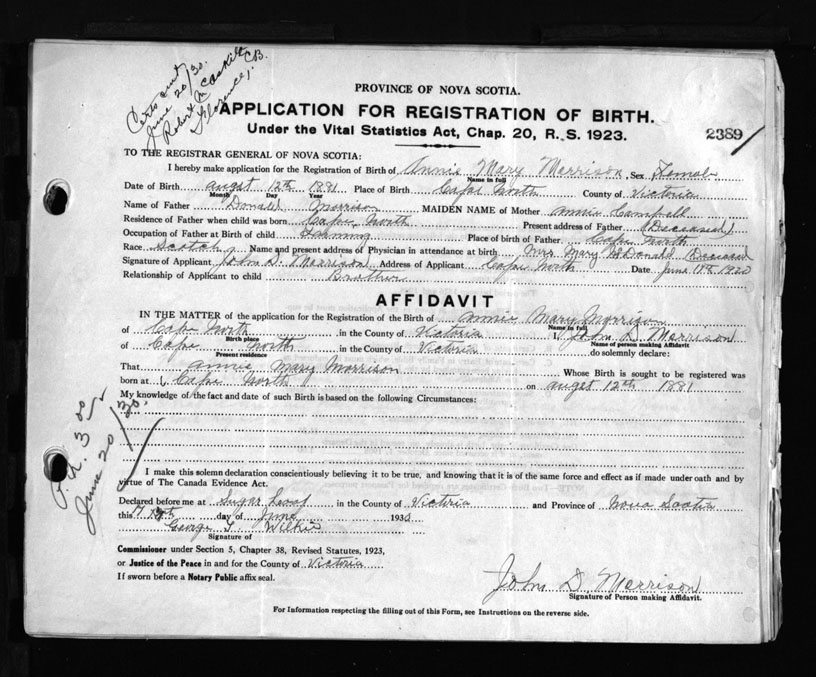 Certs sent
June 20/30.
Robert McCaskill
Florence, CB.
PROVINCE OF NOVA SCOTIA.
APPLICATION FOR REGISTRATION OF BIRTH.
Under the Vital Statistics Act, Chap. 20, R. S. 1923.
2389
TO THE REGISTRAR GENERAL OF NOVA SCOTIA:
I hereby make application for the Registration of Birth of Annie Mary Morrison, Sex Female
Name in full
Date of Birth augst 12th 1881 Place of Birth Cape North County of Victoria
Month Day Year
Name of Father Donald Morrison MAIDEN NAME of Mother Annie Campbell
Residence of Father when child was born Cape North Present address of Father (Deceased)
Occupation of Father at Birth of child Farming Place of birth of Father Cape North
Race Scotch Name and present address of Physician in attendance at birth Mrs Mary McDonald Deceased
Signature of Applicant John D. Morrison Address of Applicant Cape North Date June 1930
Relationship of Applicant to child Brother
AFFIDAVIT
IN THE MATTER of the application for the Registration of the Birth of Annie Mary Morrison
Name in full
of Cape North in the County of Victoria I, John D. Morrison
Birth place
Name of person making Affidavit
of Cape North in the County of Victoria do solemnly declare:
Present residence
That Annie Mary Morrison Whose Birth is sought to be registered was
born at Cape North on augst 12th 1881
My knowledge of the fact and date of such Birth is based on the following Circumstances:
June 20/30.
I make this solemn declaration conscientiously believing it to be true, and knowing that it is of the same force and effect as if made under oath and by
virtue of The Canada Evidence Act.
Declared before me at Sugar Loaf in the County of Victoria and Province of Nova Scotia
this day of June 1930
George Wilkie
Signature of
Commissioner under Section 5, Chapter 38, Revised Statutes, 1923,
or Justice of the Peace in and for the County of Victoria
If sworn before a Notary Public affix seal.
John D. Morrison
Signature of Person making Affidavit.
For Information respecting the filling out of this Form, see Instructions on the reverse side.